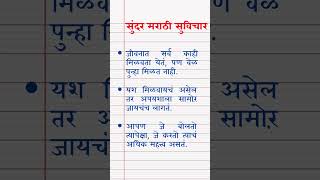 सुंदर मराठी सुविचार
• जीवनात सर्व काही
मिळवता येतं, पण वेळ
पुन्हा मिळत नाही.
• यश मिळवायचं असेल
तर अपयशाला सामोरं
जायचंच लागतं.
• आपण जे बोलतो
त्यापेक्षा, जे करतो त्याचं
अधिक महत्व असतं.